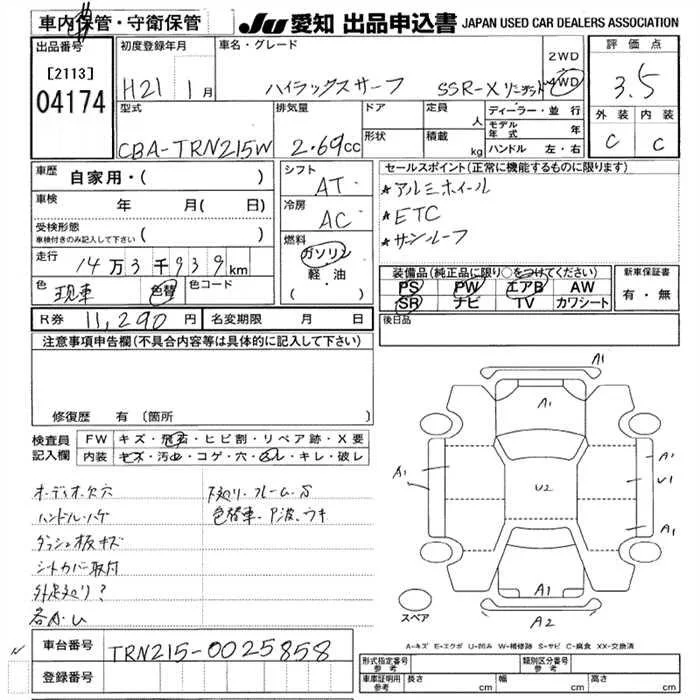 車内保管・守衛保管
JU 愛知 出品申込書 JAPAN USED CAR DEALERS ASSOCIATION
出品番号
[2113]
04174
初度登録年月
H21 1月
車名・グレード
ハイラックスサーフ SSR-X リミテッド
2WD
4WD
評価点
3.5
外装 内装
C C
型式
CBA-TRN215W
排気量
2.69cc
ドア
形状
定員
人
積載
kg
ディーラー・並行
モデル年式 年
ハンドル 左・右
車歴
自家用・( )
車検
年 月( 日)
受検形態
車検付きのみ記入して下さい ( )
走行
14万3千939km
色
現車 色替
色コード
R券 11,290円
名変期限 月 日
シフト
AT
冷房
AC
燃料
ガソリン
軽・油
( ・ )
セールスポイント(正常に機能するものに限ります)
*アルミホイール
*ETC
*サンルーフ
装備品(純正品に限り○をつけてください)
PS PW エアB AW
SR ナビ TV カワシート
新車保証書
有・無
後日品
注意事項申告欄(不具合内容等は具体的に記入して下さい)
修復歴 有(箇所 )
検査員記入欄
FW キズ・飛石・ヒビ割・リペア跡・X要
内装 キズ・汚れ・コゲ・穴・スレ・キレ・破レ
オーディオ欠穴
ハンドルハゲ
ダッシュ板キズ
シートカバー取付
下廻り・フレーム・S
色替車・P波、ウキ
A1
A1
A1
A1
U1
U2
A1
A1
A2
スペア
A-キズ E-エクボ U-凹み W-補修跡 S-サビ C-腐食 XX-交換済
車台番号
TRN215-0025858
登録番号
形式指定番号 参考
類別区分番号 参考
車庫証明用 参考
長さ cm
幅 cm
高さ cm